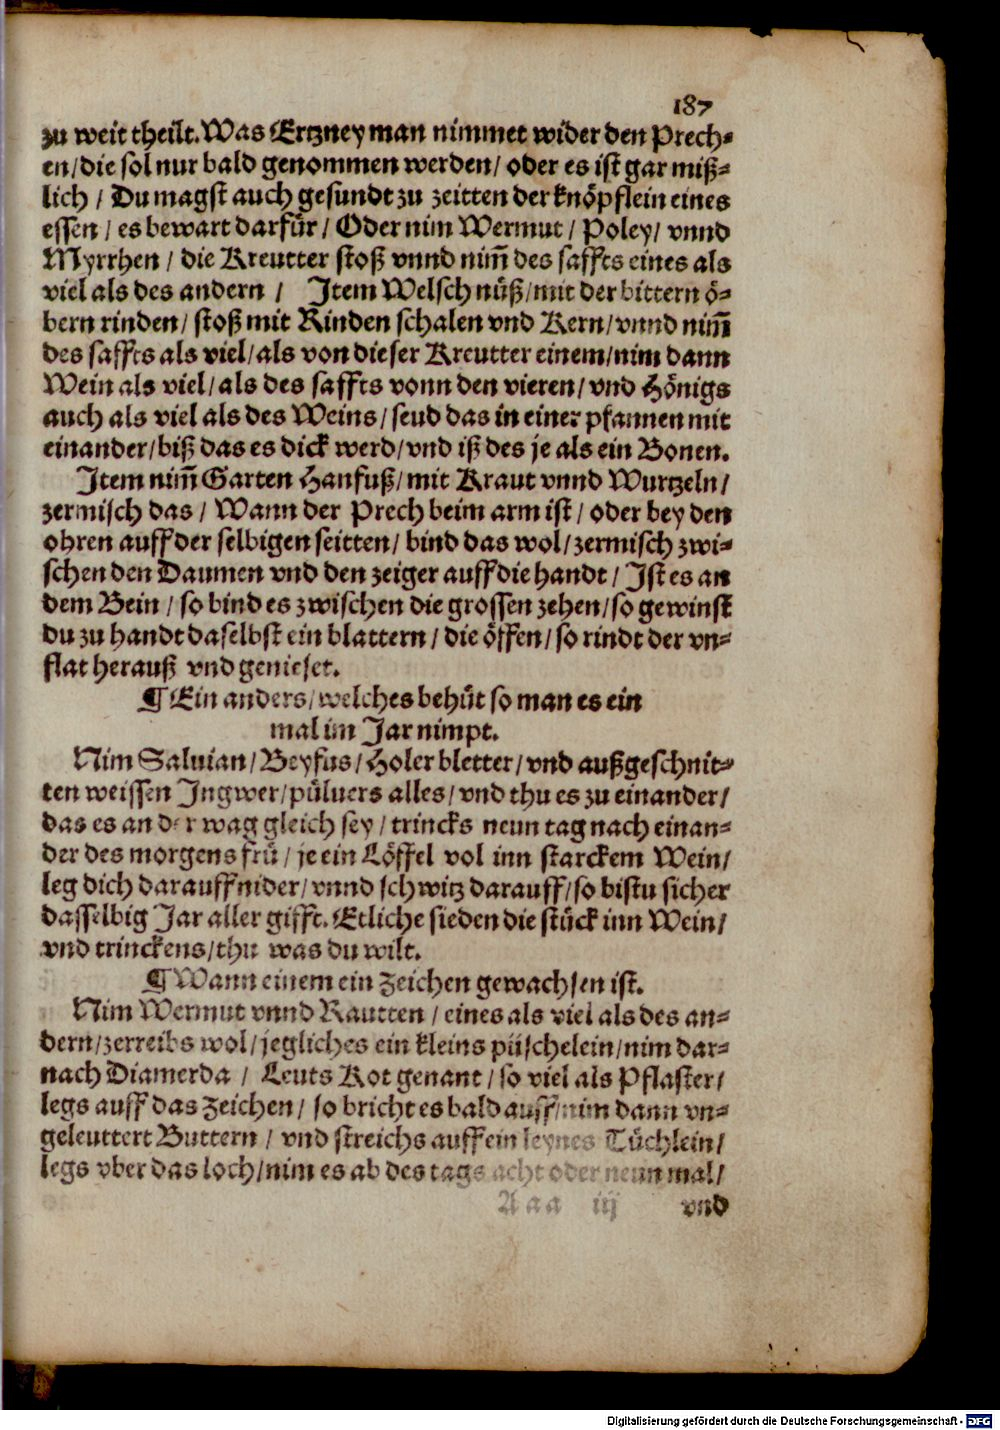 187
zu weit theilt. Was Ertzney man nimmet wider den Prech-
en / die sol nur bald genommen werden / oder es ist gar miß-
lich / Du magst auch gesundt zu zeitten der knöpflein eines
essen / es bewart darfür / Oder nim Wermut / Poley / vnnd
Myrrhen / die Kreutter stoß vnnd nim̃ des saffts eines als
viel als des andern / Item Welsch nüß / mit der bittern ö-
bern rinden / stoß mit Rinden schalen vnd Kern / vnnd nim̃
des saffts als viel / als von dieser Kreutter einem / nim dann
Wein als viel / als des saffts vonn den vieren / vnd Hönigs
auch als viel als des Weins / seud das in einer pfannen mit
einander / biß das es dick werd / vnd iß des je als ein Bonen.
Item nim̃ Garten Hanfuß / mit Kraut vnnd Wurtzeln /
zermisch das / Wann der Prech beim arm ist / oder bey den
ohren auff der selbigen seitten / bind das wol / zermisch zwi-
schen den Daumen vnd den zeiger auff die handt / Ist es an
dem Bein / so bind es zwischen die grossen zehen / so gewinst
du zu handt daselbst ein blattern / die öffen / so rindt der vn-
flat herauß vnd genieset.
¶ Ein anders / welches behüt so man es ein
mal im Jar nimpt.
Nim Saluian / Beyfus / Holer bletter / vnd außgeschnit-
ten weissen Ingwer / püluers alles / vnd thu es zu einander /
das es an der wag gleich sey / trincks neun tag nach einan-
der des morgens frü / je ein Löffel vol inn starckem Wein /
leg dich darauff nider / vnnd schwitz darauff / so bistu sicher
dasselbig Jar aller gifft. Etliche sieden die stück inn Wein /
vnd trinckens / thu was du wilt.
¶ Wann einem ein Zeichen gewachsen ist.
Nim Wermut vnnd Rautten / eines als viel als des an-
dern / zerreibs wol / jegliches ein kleins püschelein / nim dar-
nach Diamerda / Leuts Kot genant / so viel als Pflaster /
legs auff das Zeichen / so bricht es bald auff / nim dann vn-
geleuttert Buttern / vnd streichs auff ein leynes Tüchlein /
legs vber das loch / nim es ab des tags acht oder neun mal /
Aaa iij vnd
Digitalisierung gefördert durch die Deutsche Forschungsgemeinschaft - DFG